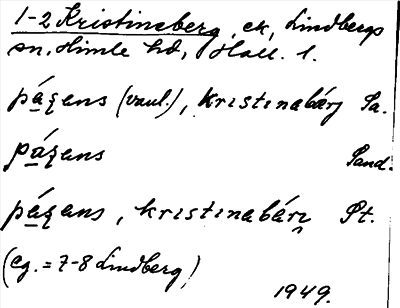 1-2 Kristineberg, ek, Lindbergs
sn, Himle hd, Hall. l.
pá̱ʒens (vanl.), kristinabárj Sa.
pá̱ʒens Sand.
pá̱ʒens, kristinabárj St.
(eg. = 7-8 Lindberg)
1949.